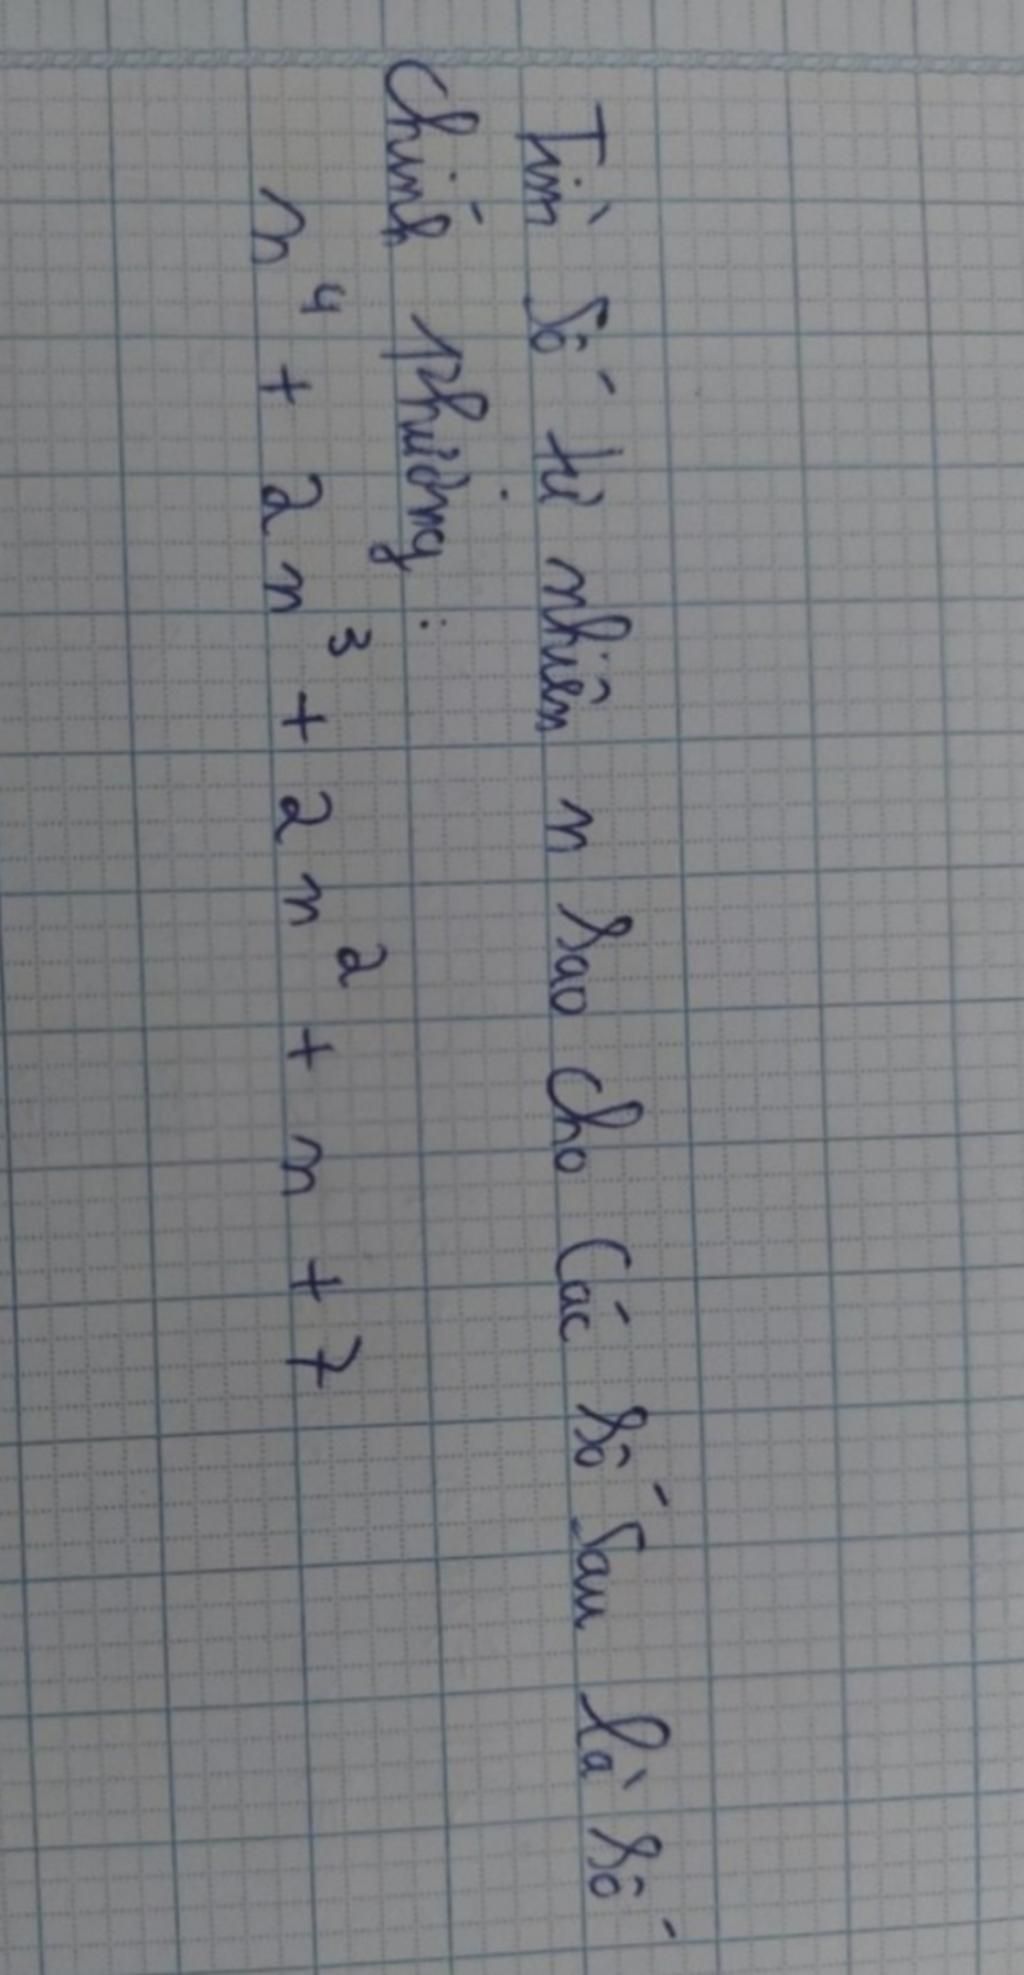 Tìm số tự nhiên n sao cho các số sau là số
Chính phương :
n⁴ + 2n³ + 2n² + n + 7